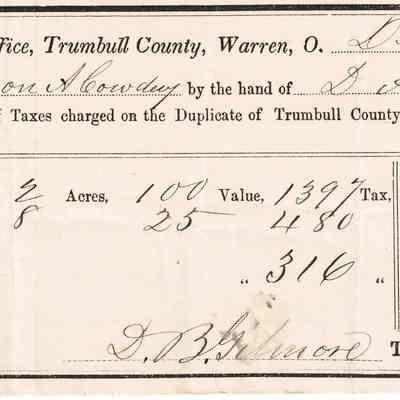 ffice, Trumbull County, Warren, O. D
on A Cowdry by the hand of D
f Taxes charged on the Duplicate of Trumbull County
2/8 Acres, 100 Value, 1397 Tax,
25 480
„ 316 „
D. B. Gilmore T